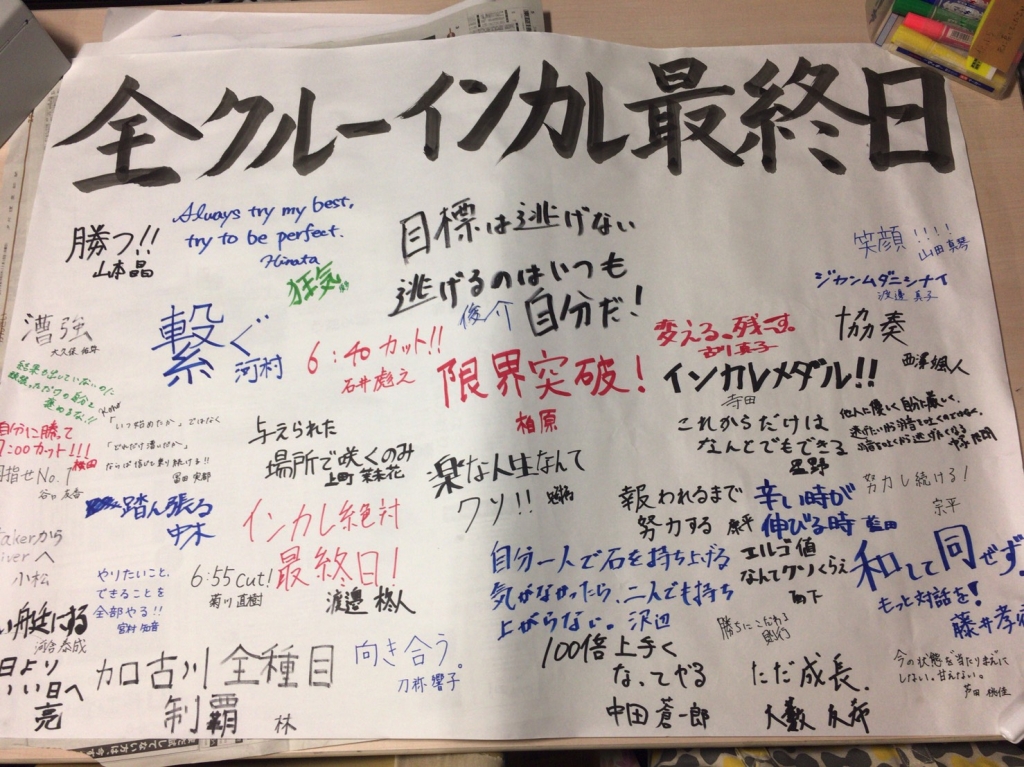 全クルーインカレ最終日
勝つ!!
山本晶
Always try my best,
try to be perfect.
Hinata
狂気
目標は逃げない
逃げるのはいつも
自分だ!
俊介
笑顔!!!!
山田真琴
ジカンムダニシナイ
渡邊真子
漕強
繋ぐ
河村
6:40カット!!
石井彪之
限界突破!
柏原
変える。残す。
古川真子
インカレメダル!!
寺田
協奏
西澤颯人
自分に勝て
7:00カット!!!
桜田
目指せNo.1
谷口友香
「いつ始めたか」ではなく
「どれだけ漕いだか」
与えられた
場所で咲くのみ
上町茉未花
楽な人生なんて
クソ!!
これからだけは
なんとでもできる
星野
踏ん張る
中木
インカレ絶対
最終日!
渡邊柊人
報われるまで
努力する
辛い時が
伸びる時
藍田
努力し続ける!
宗平
akerから
iverへ
小松
やりたいこと、
できることを
全部やる!!
宮村知音
6:55cut!
菊川直樹
自分一人で石を持ち上げる
気がなかったら、二人でも持ち
上がらない。沢辺
エルゴ値
なんてクソくらえ
和して同せず
もっと対話を!
い艇にする
河合泰成
日より
いい日へ
亮
加古川全種目
制覇
林
向き合う。
刀祢響子
100倍上手く
なってやる
中田蒼一郎
勝ちにこだわる
ただ成長.
今の状態を当たりまえに
しない。甘えない。